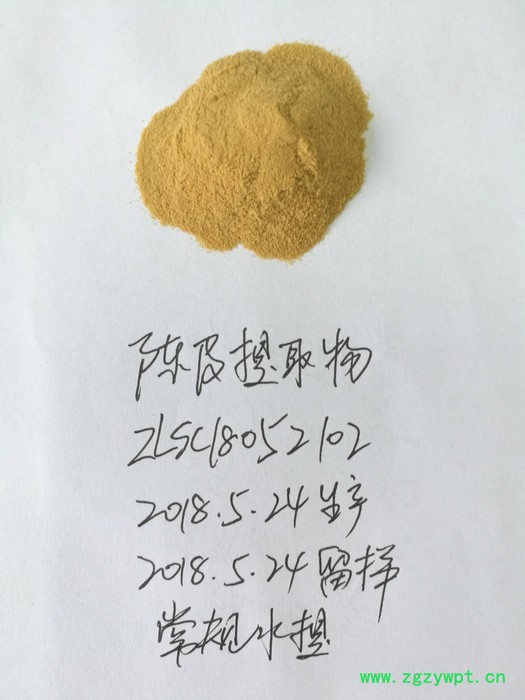 陈皮提取物
ZLSC18052102
2018.5.24生产
2018.5.24留样
常规水提
www.zgzywpt.cn